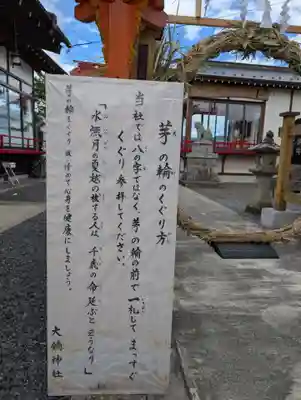 茅の輪のくぐり方
当社では八の字ではなく茅の輪の前で一礼してまっすぐ
くぐり参拝してください。
「水無月の夏越の祓する人は 千歳の命 延ぶと云うなり」
茅の輪をくぐり祓い清めて心身を健康にしましょう。
大鏑神社